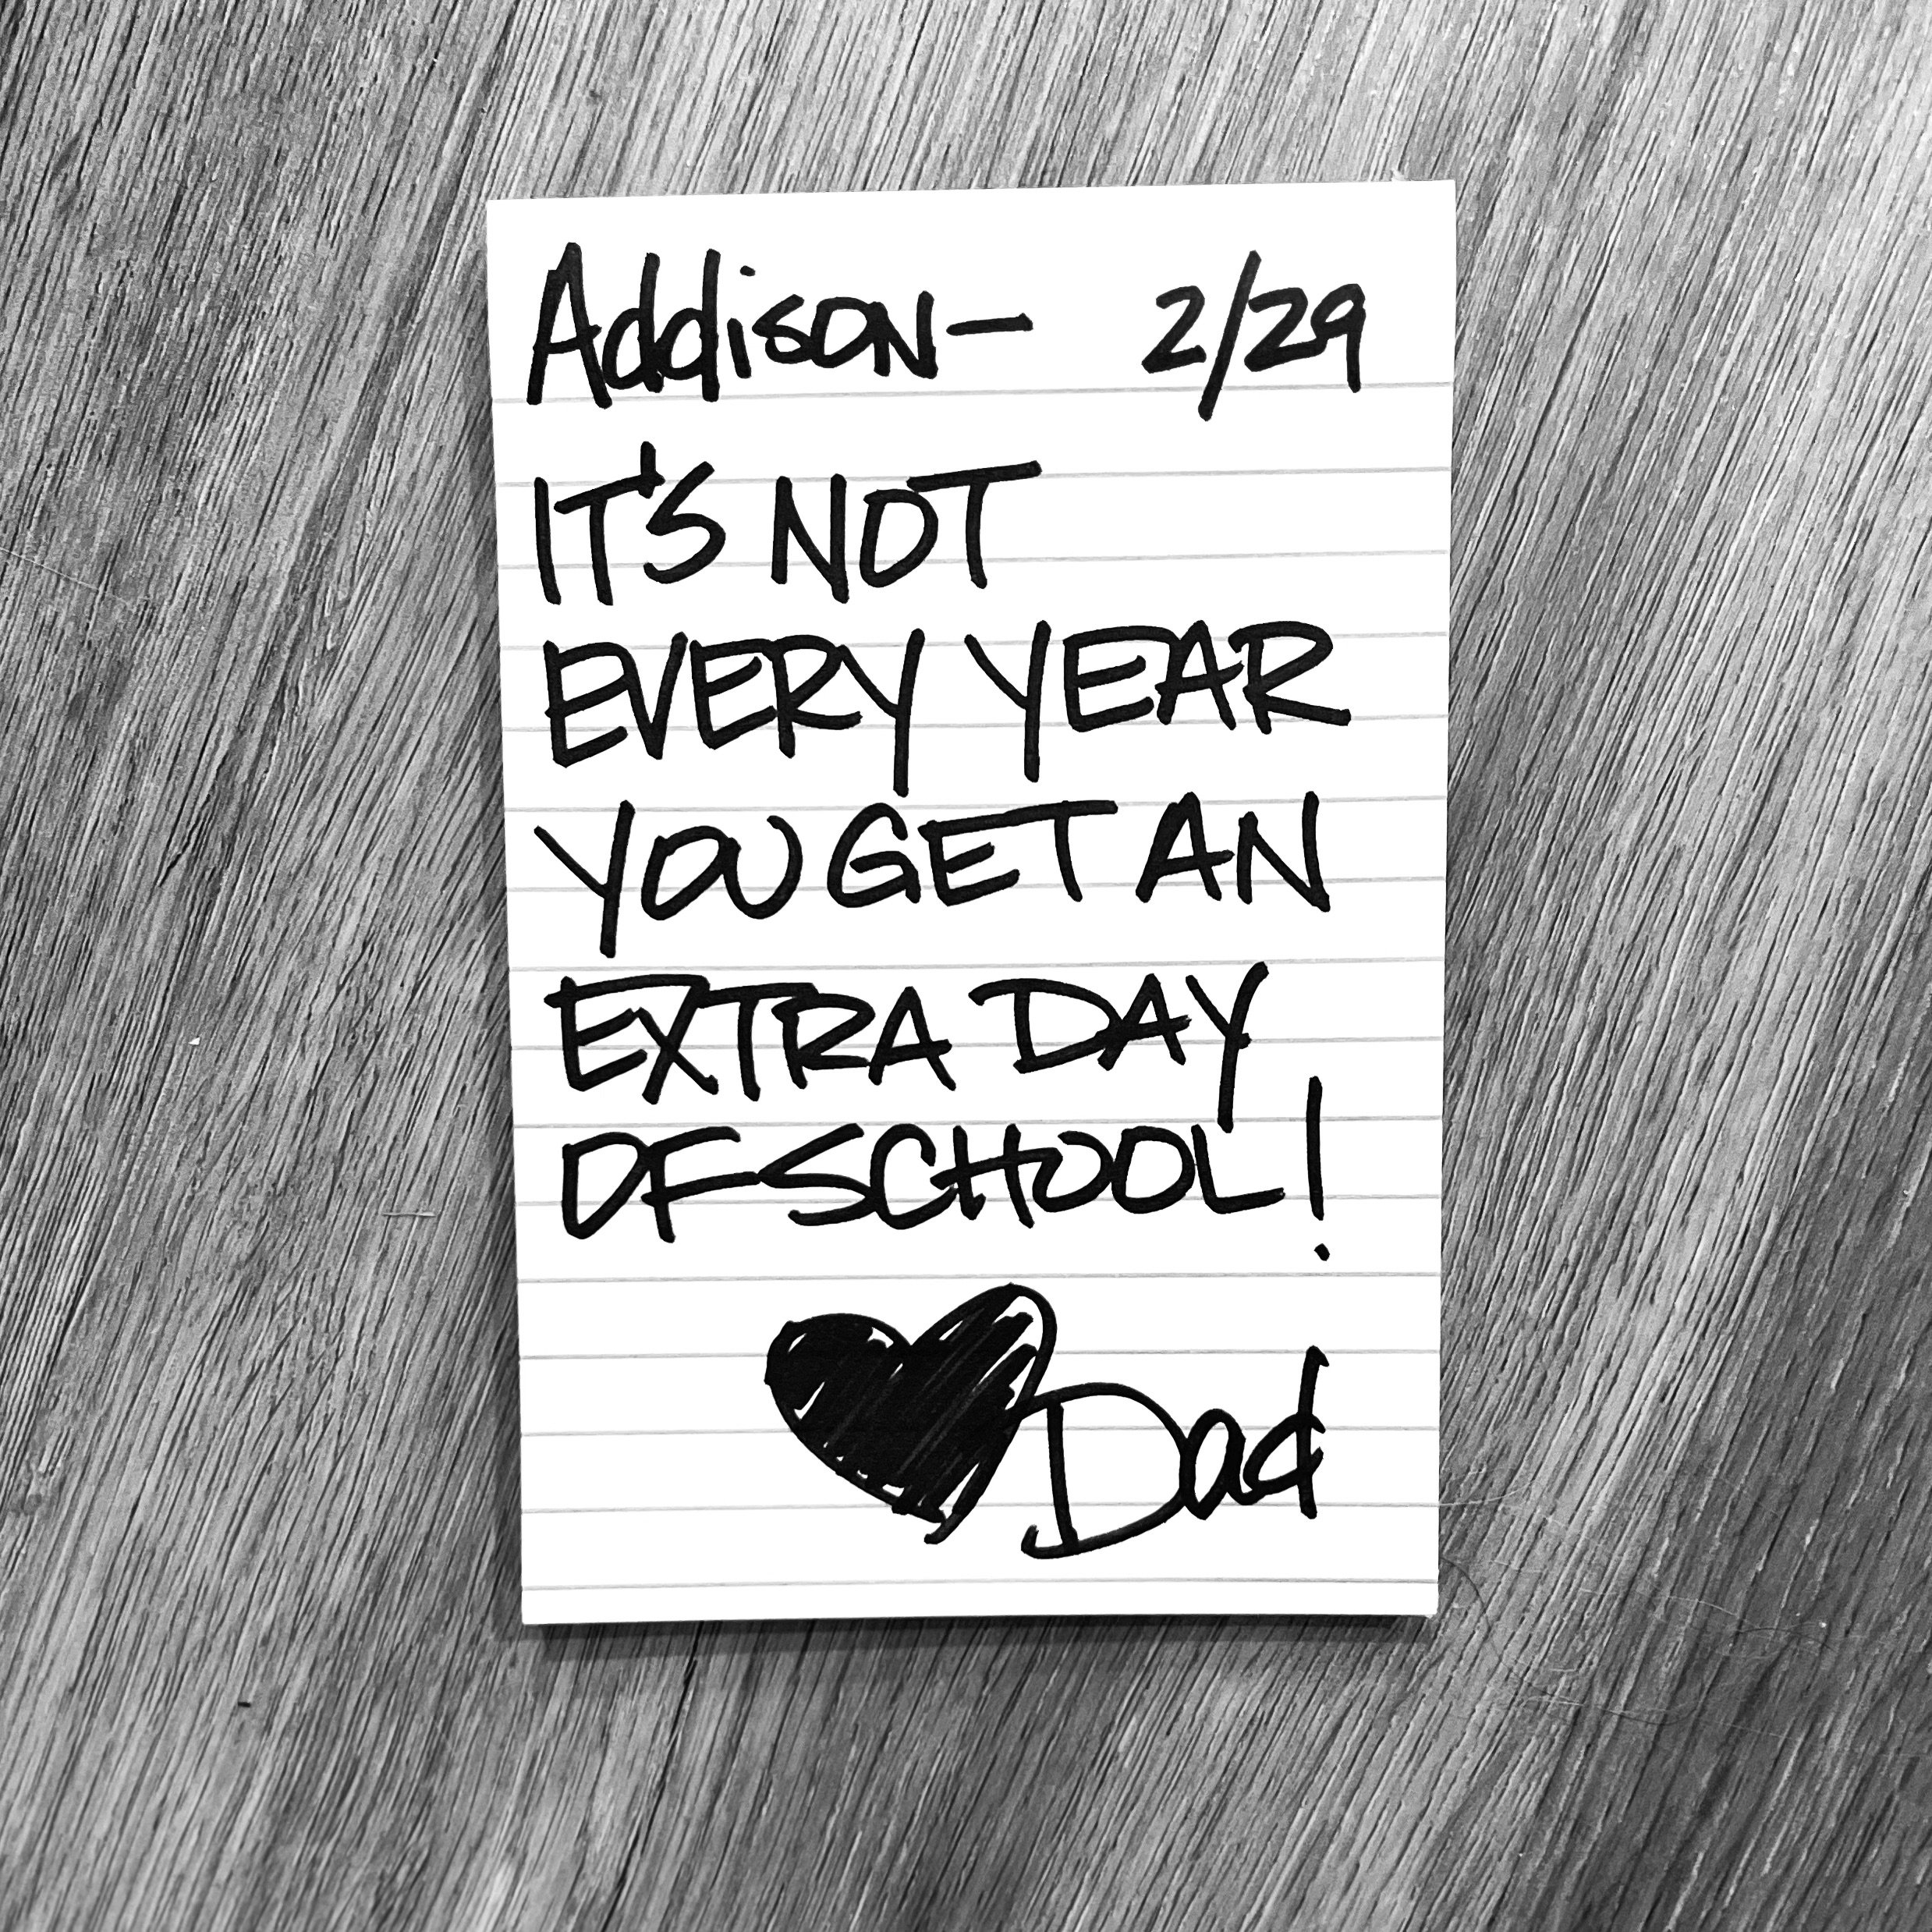 Addison— 2/29
IT'S NOT
EVERY YEAR
YOU GET AN
EXTRA DAY
OF SCHOOL!
Dad